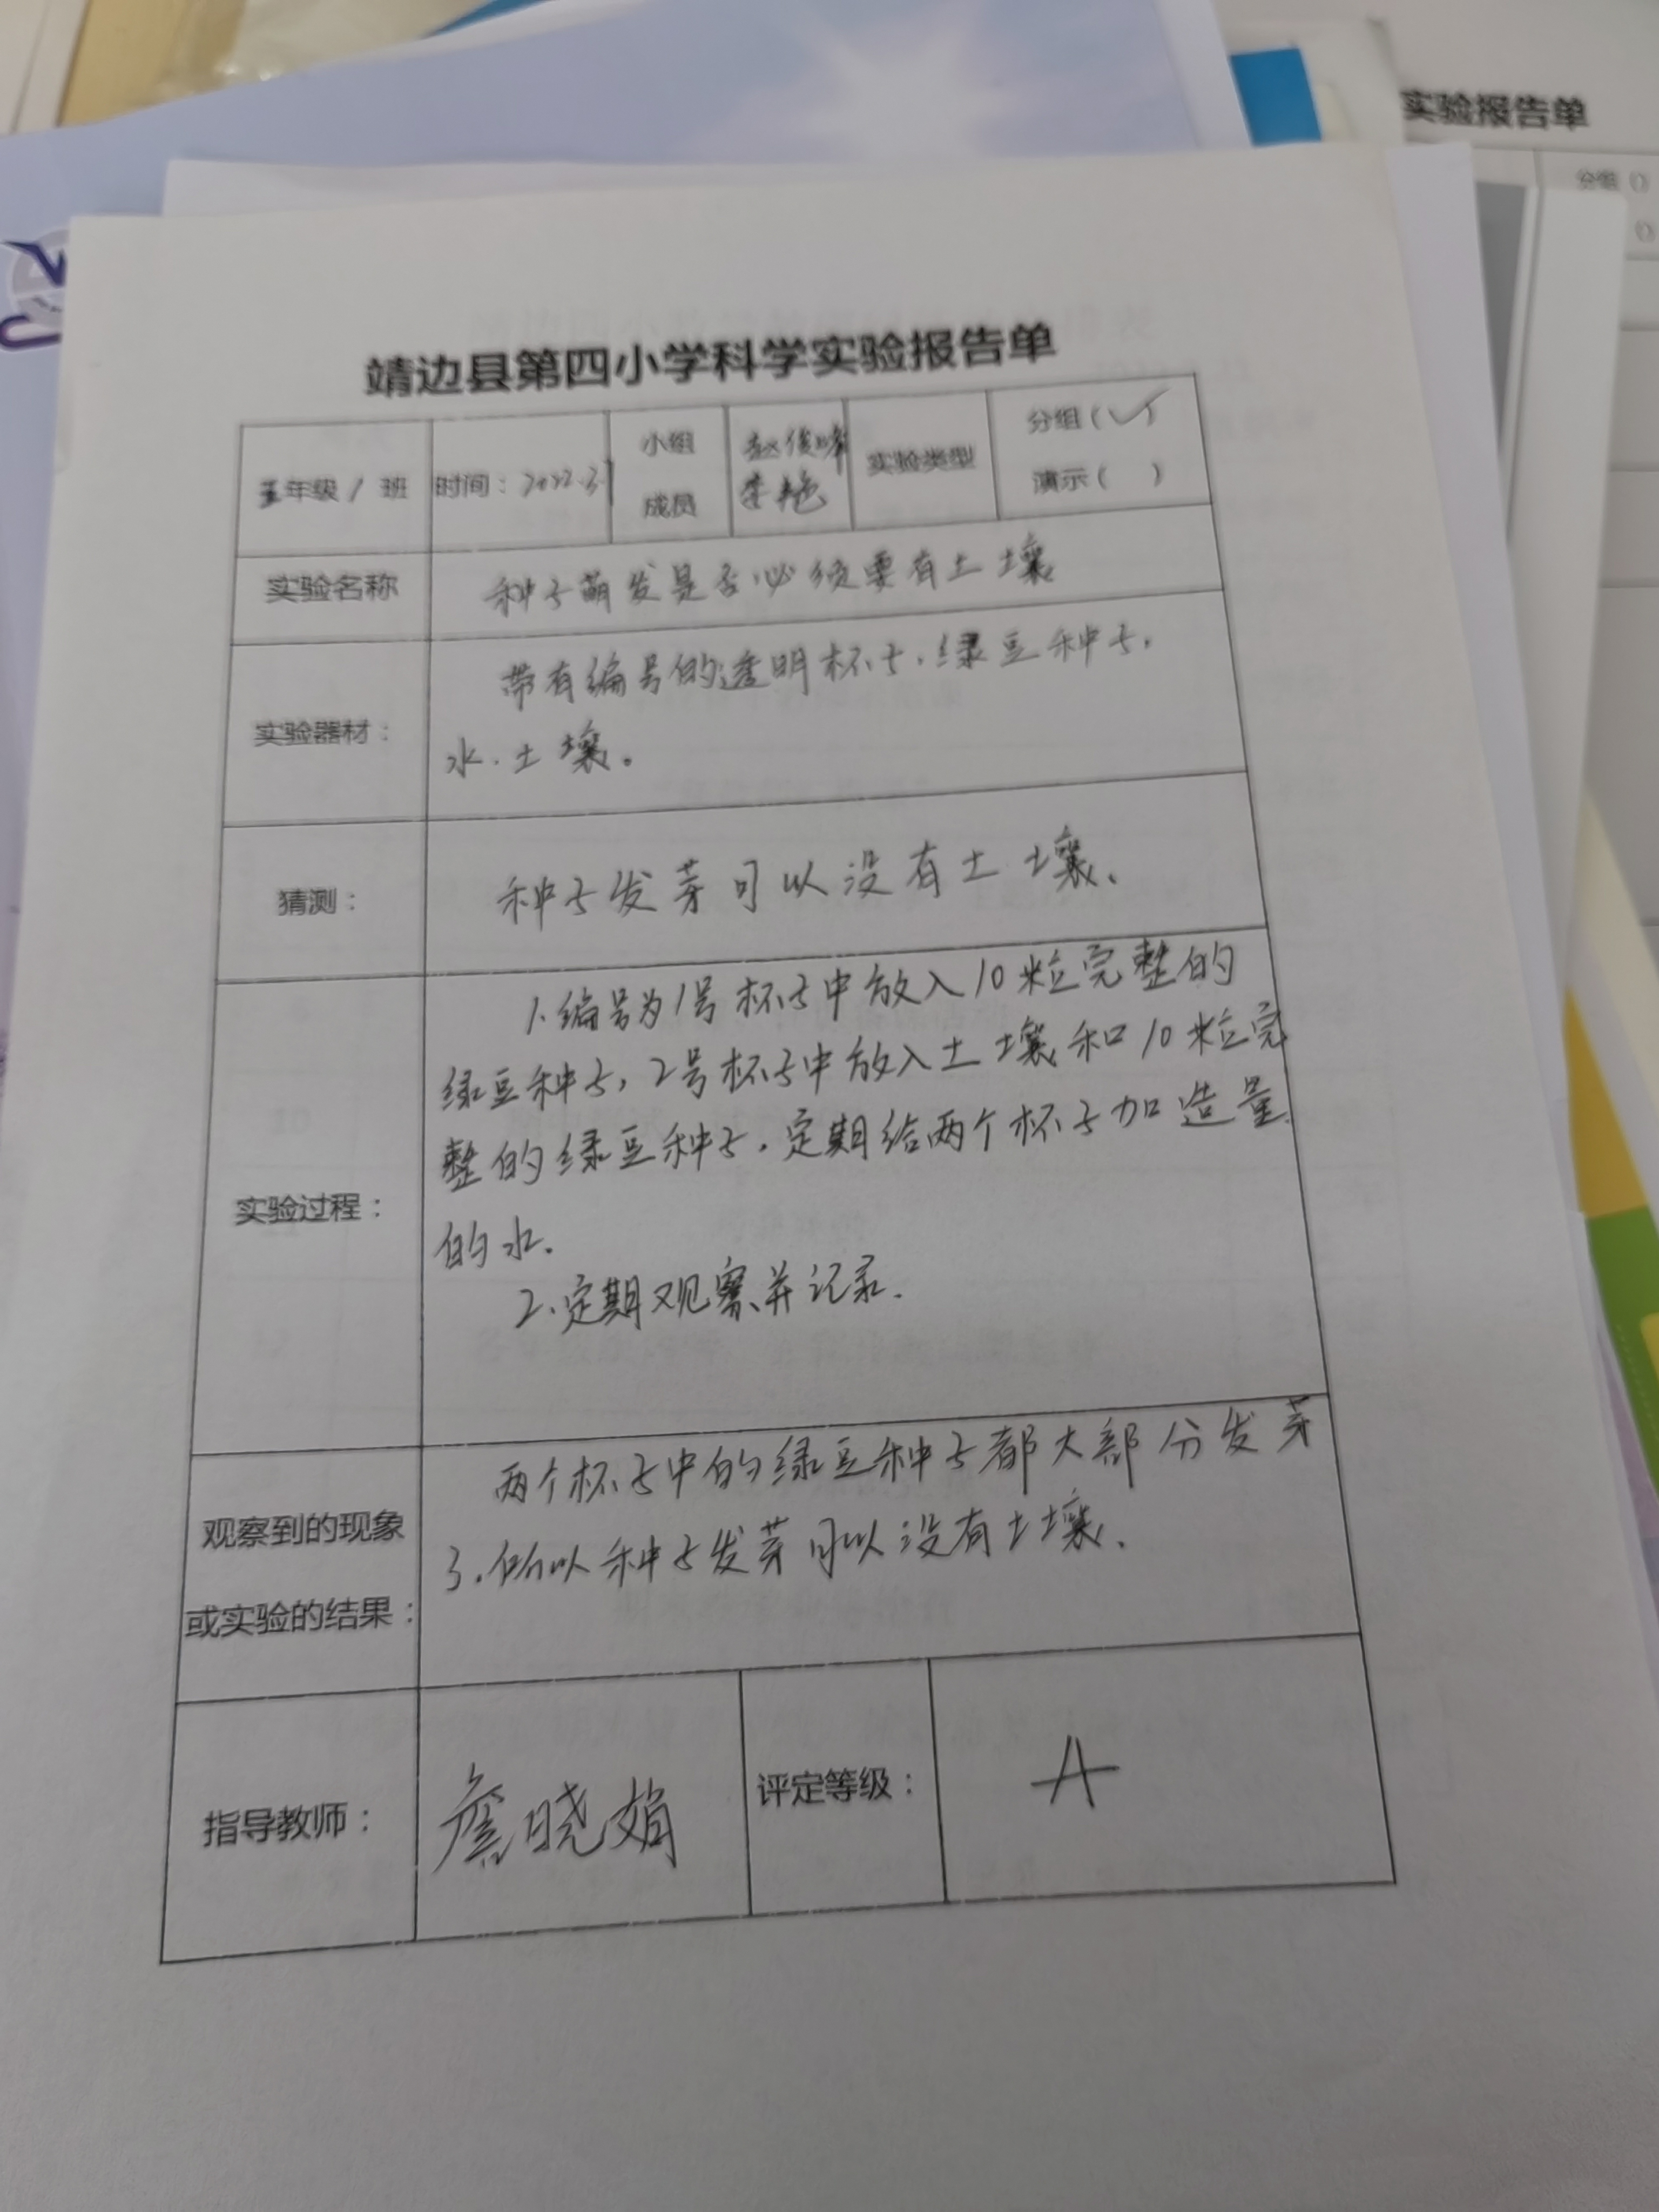 实验报告单
分组 ()
()
靖边县第四小学科学实验报告单
五年级 1 班
时间：2022.3.1
小组
成员
赵俊峰
李艳
实验类型
分组（✓）
演示（ ）
实验名称
种子萌发是否必须要有土壤
实验器材：
带有编号的透明杯子、绿豆种子、
水、土壤。
猜测：
种子发芽可以没有土壤、
实验过程：
1、编号为1号杯子中放入10粒完整的
绿豆种子，2号杯子中放入土壤和10粒完
整的绿豆种子，定期给两个杯子加造量
的水.
2、定期观察并记录.
观察到的现象
或实验的结果：
两个杯子中的绿豆种子都大部分发芽
了.所以种子发芽可以没有土壤、
指导教师：
詹晓娟
评定等级：
A